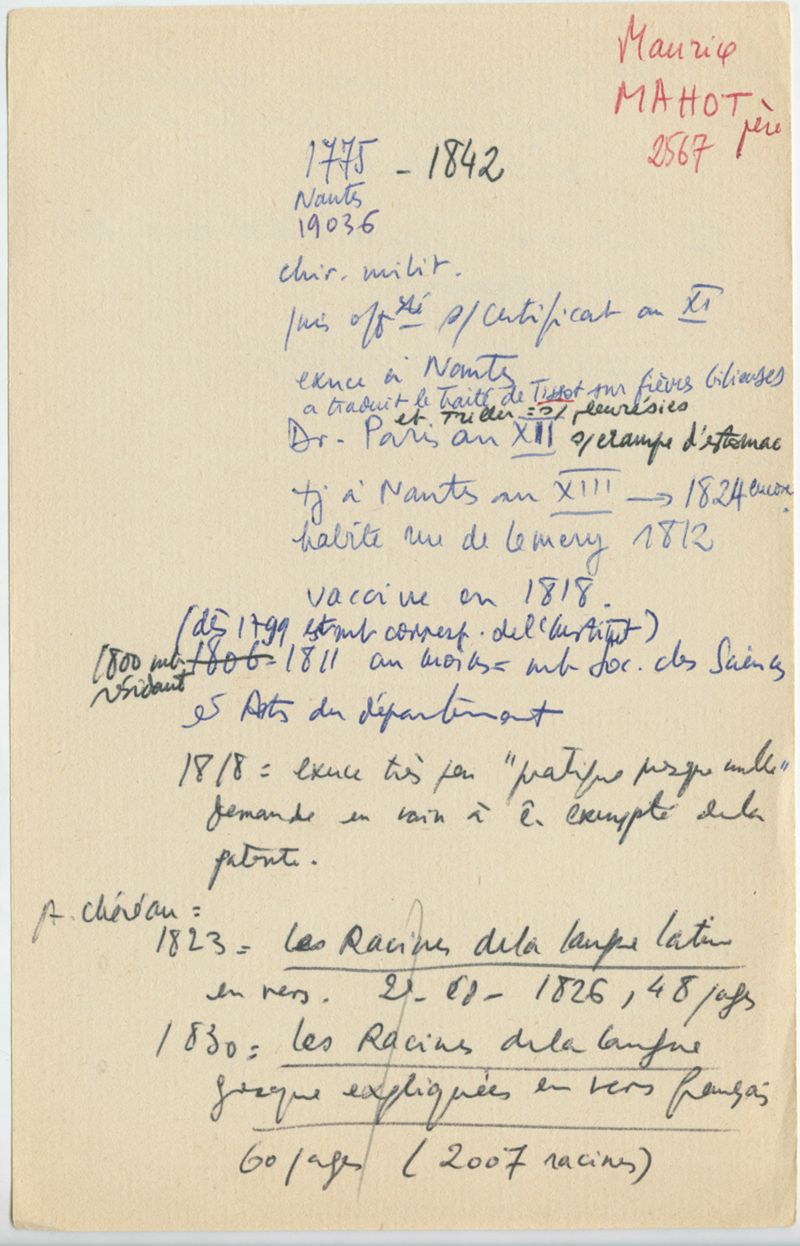 Maurice
MAHOT
père
2567
1775 - 1842
Nantes
19036
chir. milit.
puis off. s/ certificat an XI
exerce à Nantes
a traduit le traité de Tissot sur fièvres bilieuses
et Triller = s/ pleurésies
Dr - Paris an XII s/ crampe d'estomac
tj à Nantes an XIII → 1824 encore
habite rue de Lemery 1812
vaccine en 1818.
(dès 1799 est mb corresp. de l'Institut)
1800 mb résidant
1806-1811 au moins = mb Soc. des Sciences
et Arts du département
1818 = exerce très peu "pratique presque nulle"
demande en vain à ê. exempté de la
patente.
A. Chéreau =
1823 = les Racines de la langue latine
en vers. 2e éd - 1826, 48 pages
1830 = les Racines de la langue
grecque expliquées en vers français
60 pages (2007 racines)